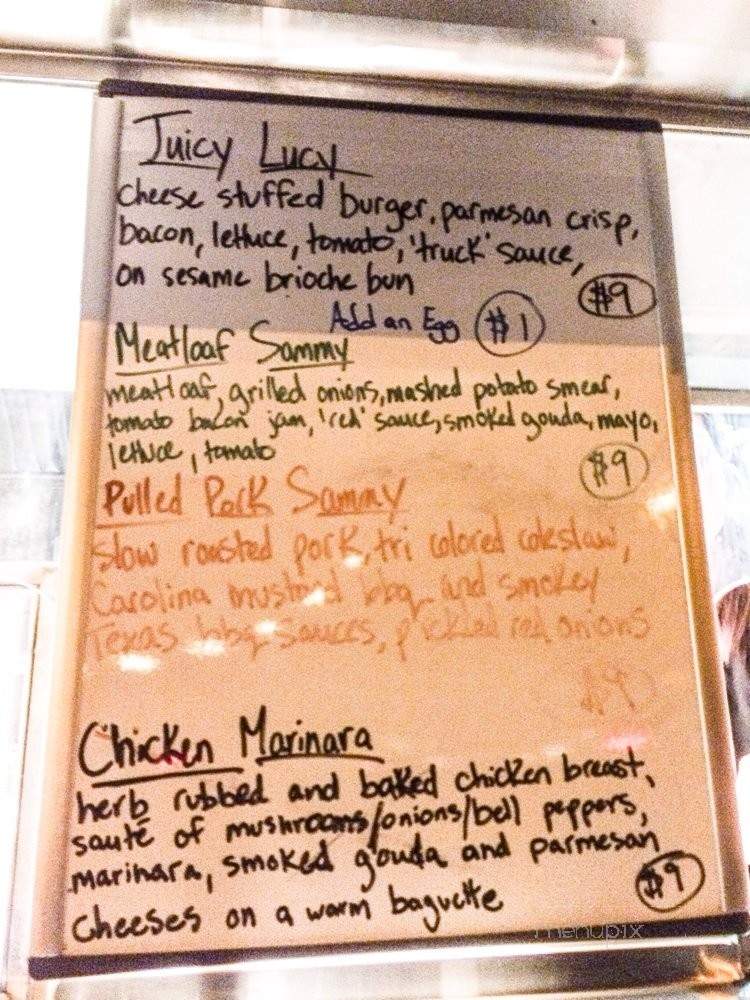 Juicy Lucy
cheese stuffed burger, parmesan crisp,
bacon, lettuce, tomato, 'truck' sauce,
on sesame brioche bun
$9
Add an Egg $1
Meatloaf Sammy
meatloaf, grilled onions, mashed potato smear,
tomato bacon jam, 'red' sauce, smoked gouda, mayo,
lettuce, tomato
$9
Pulled Pork Sammy
slow roasted pork, tri colored coleslaw,
Carolina mustard bbq and smokey
Texas bbq sauces, pickled red onions
$9
Chicken Marinara
herb rubbed and baked chicken breast,
sauté of mushrooms/onions/bell peppers,
marinara, smoked gouda and parmesan
cheeses on a warm baguette
$9
menupix